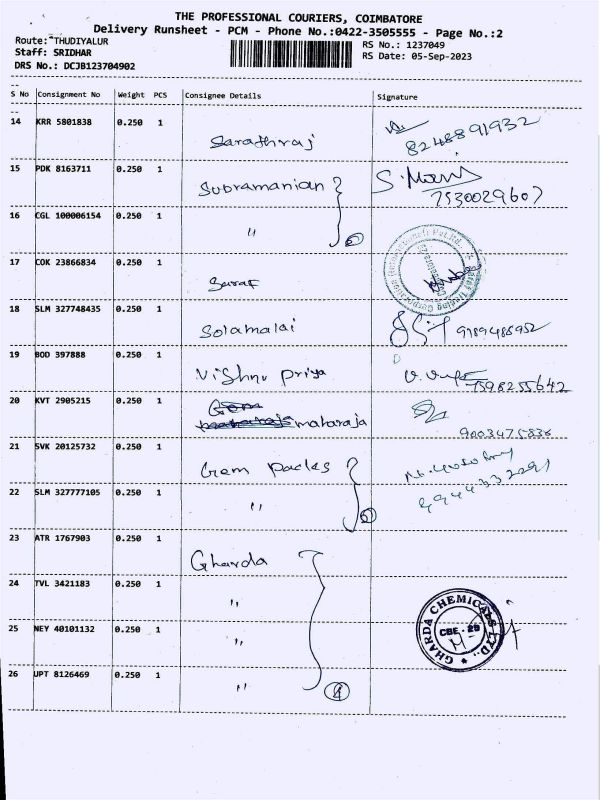 THE PROFESSIONAL COURIERS, COIMBATORE
Delivery Runsheet - PCM - Phone No.:0422-3505555 - Page No.:2
Route: THUDIYALUR
Staff: SRIDHAR
DRS No.: DCJB123704902
RS No.: 1237049
RS Date: 05-Sep-2023
S No Consignment No Weight PCS Consignee Details Signature
14 KRR 5801838 0.250 1 Sarathraj 8248891932
15 PDK 8163711 0.250 1 Subramanian S. Mani 7530029607
16 CGL 100006154 0.250 1 "
17 COK 23866834 0.250 1
18 SLM 327748435 0.250 1 Solamalai 9789488952
19 BOD 397888 0.250 1 Vishnu Priya 7598255642
20 KVT 2905215 0.250 1 maharaja 9003475836
21 SVK 20125732 0.250 1 Gem Packs
22 SLM 327777105 0.250 1 "
23 ATR 1767903 0.250 1 Gharda
24 TVL 3421183 0.250 1 "
25 NEY 40101132 0.250 1 "
GHARDA CHEMICALS LTD.
CBE - 29
26 UPT 8126469 0.250 1 "